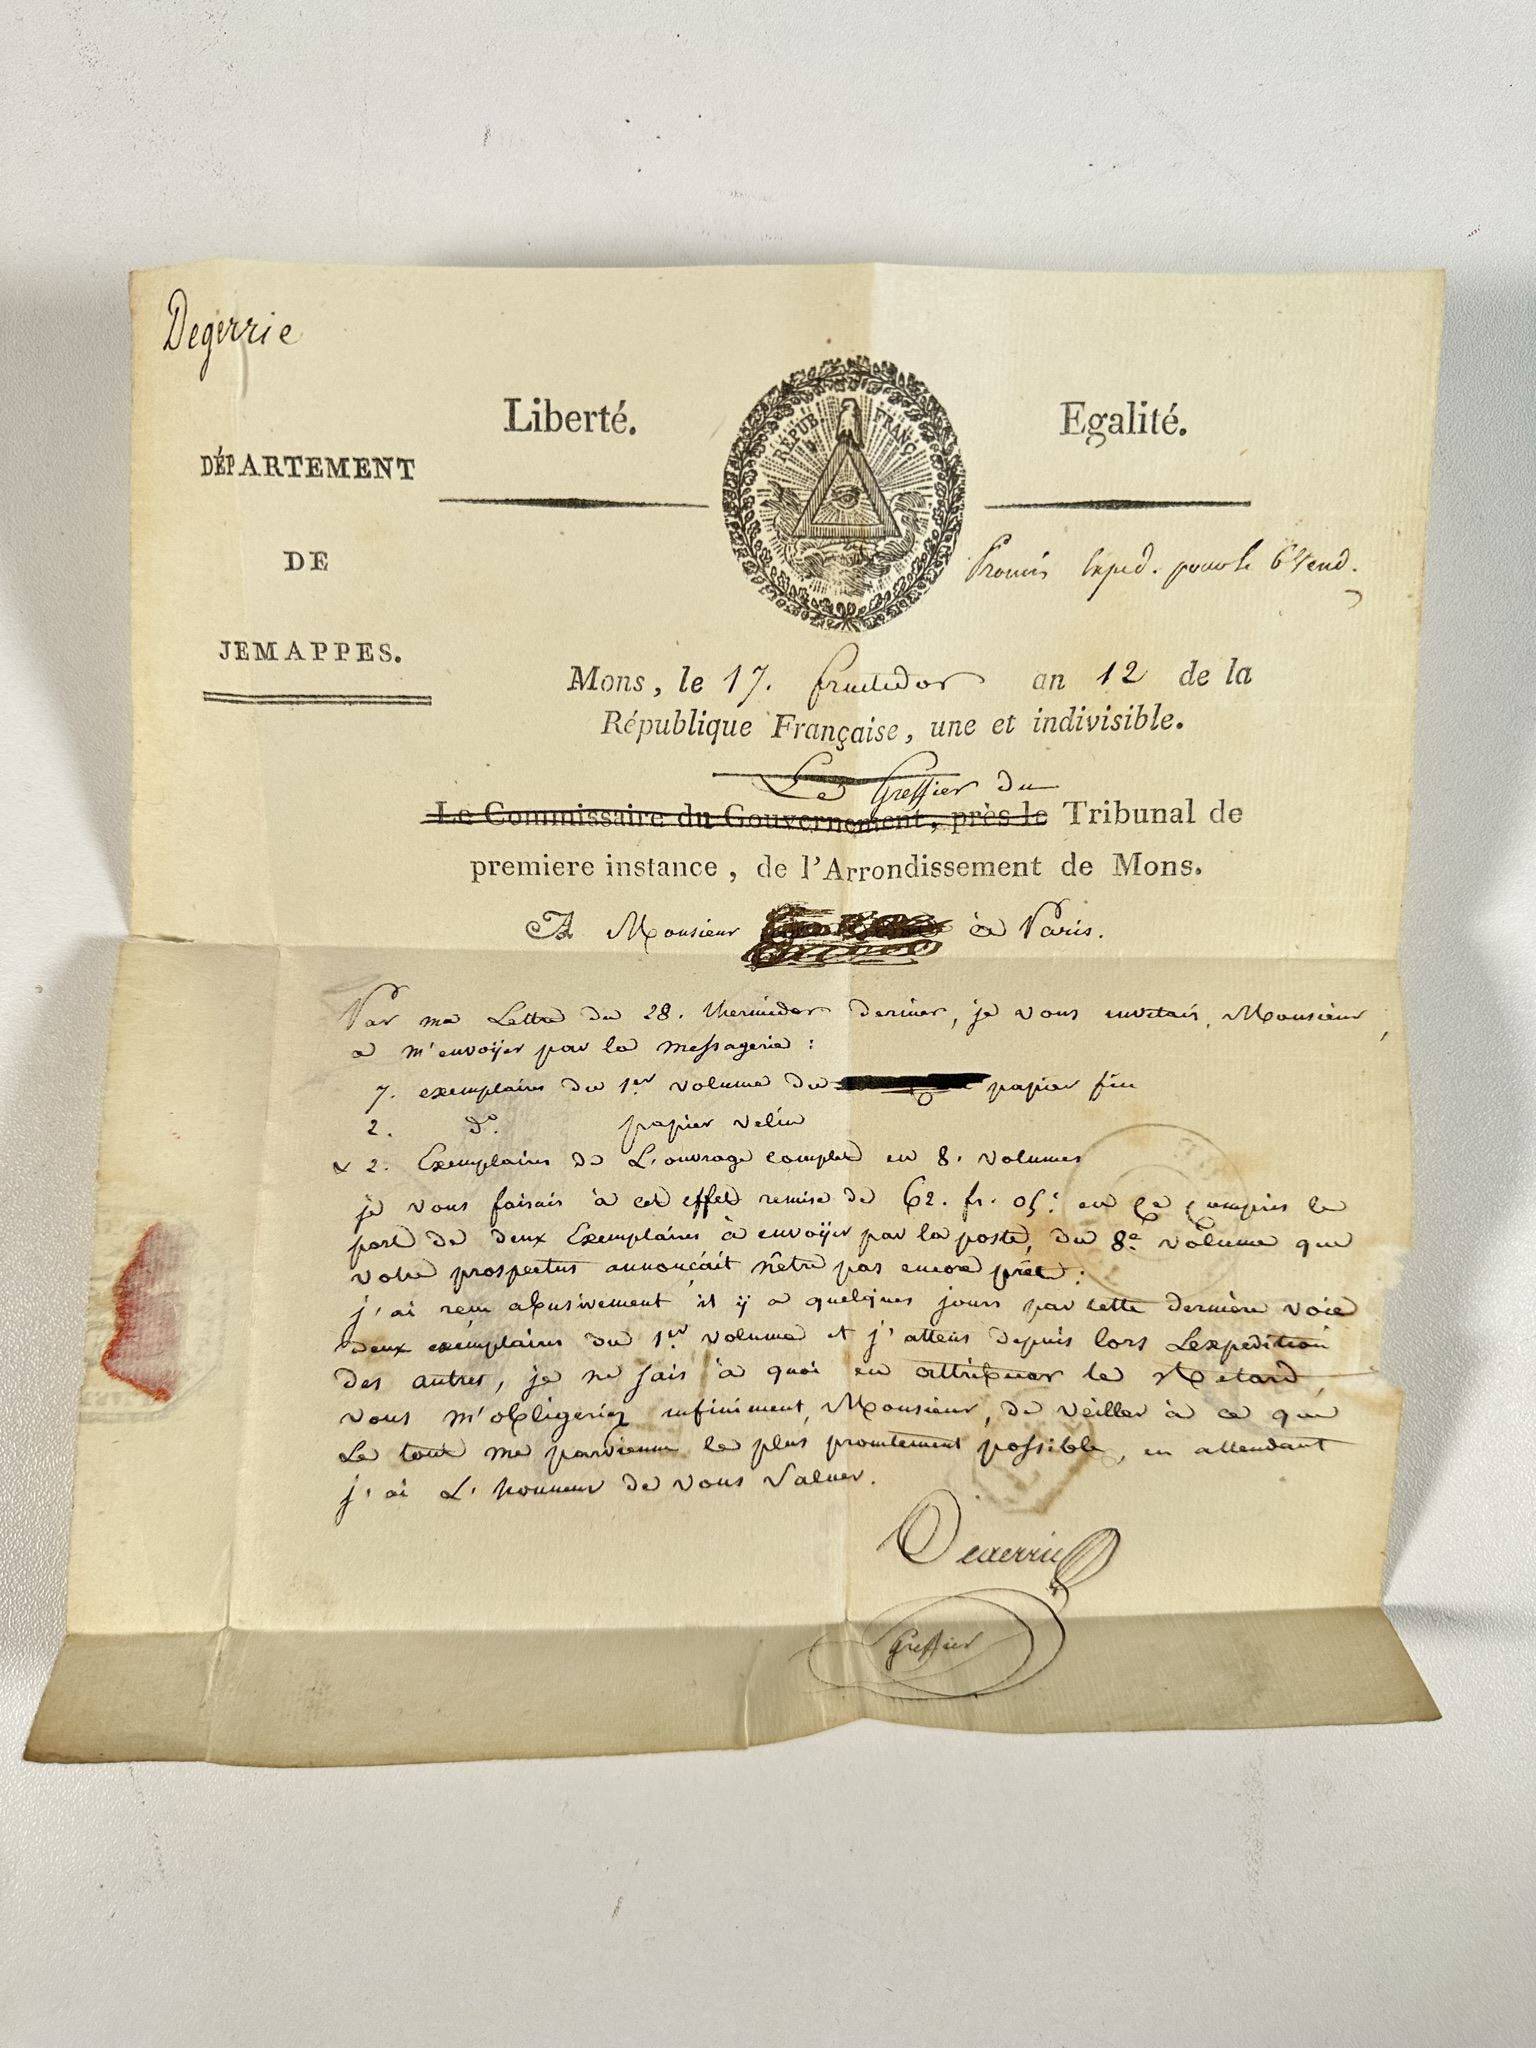 Degerrie
Liberté.
RÉPUB FRANÇ
Egalité.
DÉPARTEMENT
DE
JEMAPPES.
Promis exped. pour le 6 Vend.
Mons, le 17. fructidor an 12 de la
République Française, une et indivisible.
Le Greffier du
Le Commissaire du Gouvernement, près le Tribunal de
premiere instance, de l'Arrondissement de Mons.
A Monsieur à Paris.
Par ma Lettre du 28. thermidor dernier, je vous invitais, Monsieur,
a m'envoÿer par la messagerie :
7. exemplaires du 1er volume du papier fin
2. do. papier velin
& 2. Exemplaires de L'ouvrage complet en 8. volumes
je vous faisais à cet effet remise de 62. fr. 05c. en ce compris le
port de deux Exemplaires à envoÿer par la poste, du 8e volume que
votre prospectus annonçait n'être pas encore prêt :
j'ai reçu abusivement il ÿ a quelques jours par cette dernière voie
deux exemplaires du 1er volume et j'attens depuis lors Lexpedition
des autres, je ne sais à quoi en attribuer le Retard,
vous m'obligeriez infiniment, Monsieur, de veiller à ce que
Le tout me parvienne le plus promtement possible, en attendant
j'ai L'honneur de vous saluer.
Degerrie
Greffier